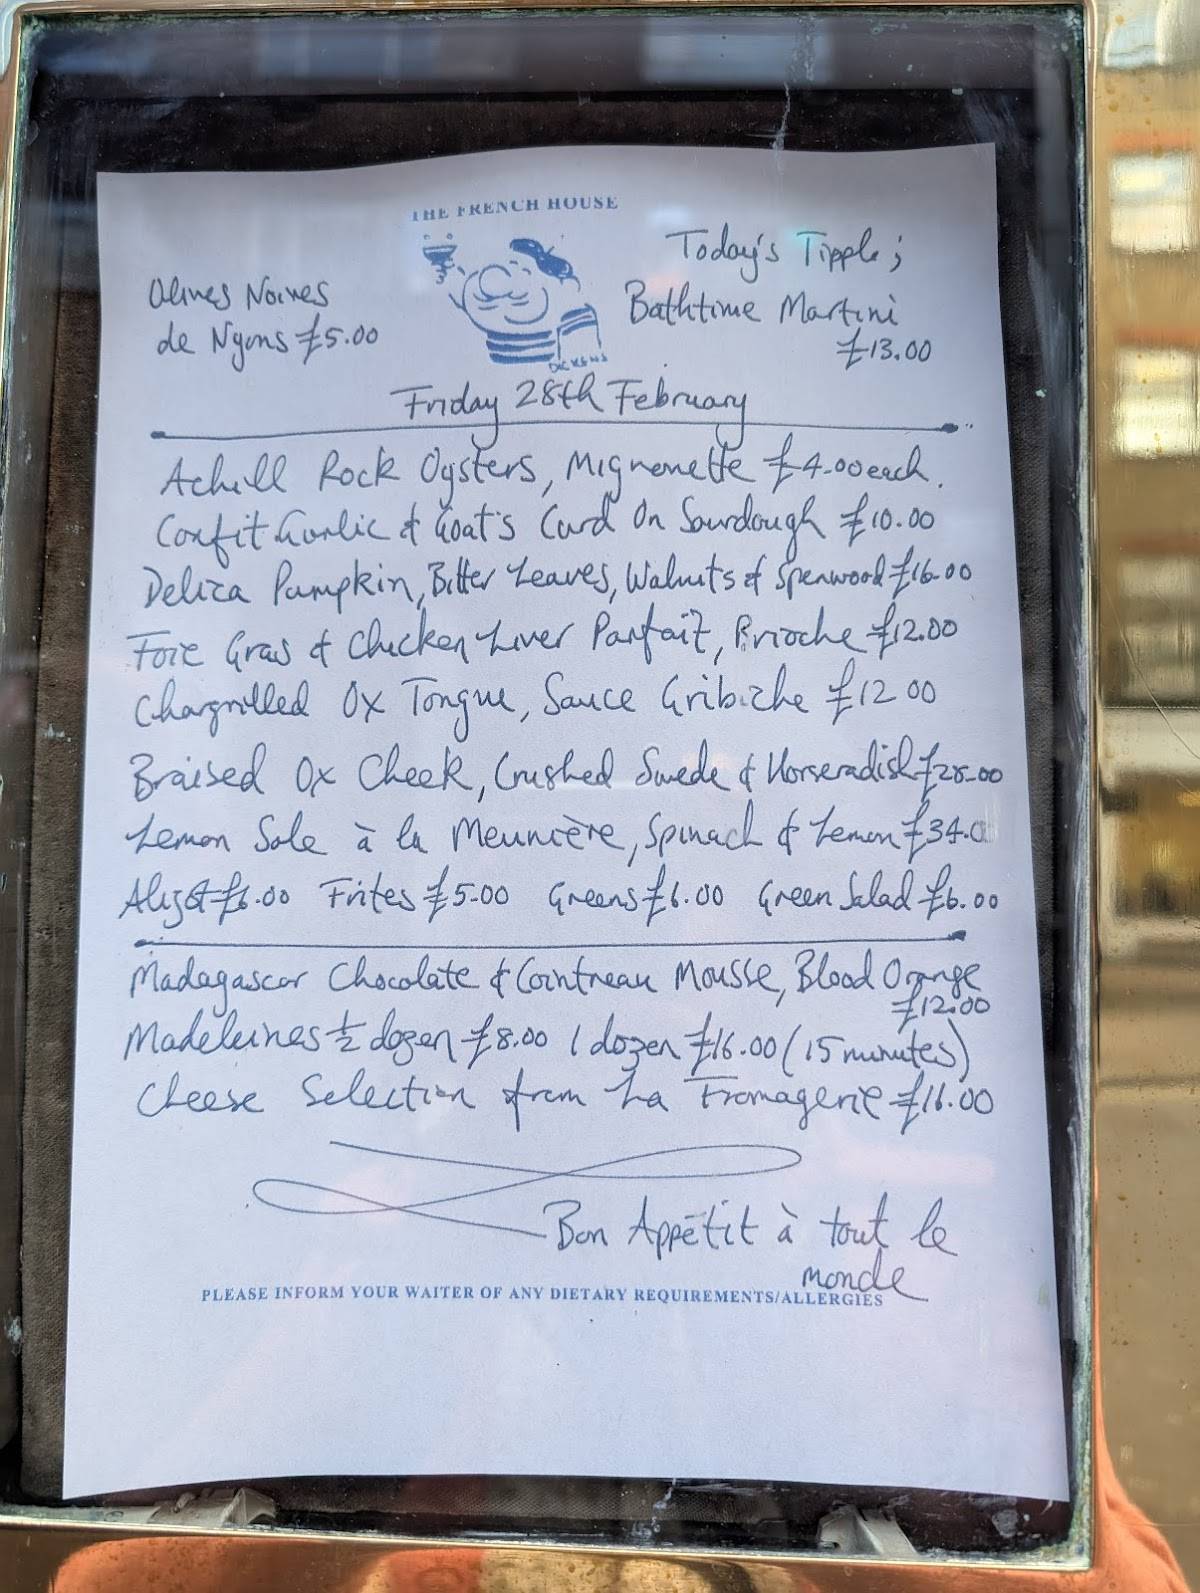 THE FRENCH HOUSE
Olives Noires
de Nyons £5.00
Today's Tipple;
Bathtime Martini
£13.00
DICKENS
Friday 28th February
Achill Rock Oysters, Mignonette £4.00 each.
Confit Garlic & Goat's Curd On Sourdough £10.00
Delica Pumpkin, Bitter Leaves, Walnuts & Spenwood £16.00
Foie Gras & Chicken Liver Parfait, Brioche £12.00
Chargrilled Ox Tongue, Sauce Gribiche £12 00
Braised Ox Cheek, Crushed Swede & Horseradish
Lemon Sole à la Meunière, Spinach & Lemon £34.0
Aligot £6.00 Frites £5.00 Greens £6.00 Green Salad £6.00
Madagascar Chocolate & Cointreau Mousse, Blood Orange
£12.00
Madeleines ½ dozen £8.00 1 dozen £16.00 (15 minutes)
Cheese Selection from La Fromagerie £16.00
Bon Appétit à tout le
monde
PLEASE INFORM YOUR WAITER OF ANY DIETARY REQUIREMENTS/ALLERGIES